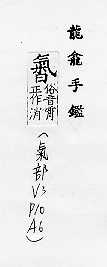 龍龕手鑑
俗音霄
正作消
(氣部
V3
P10
A6)